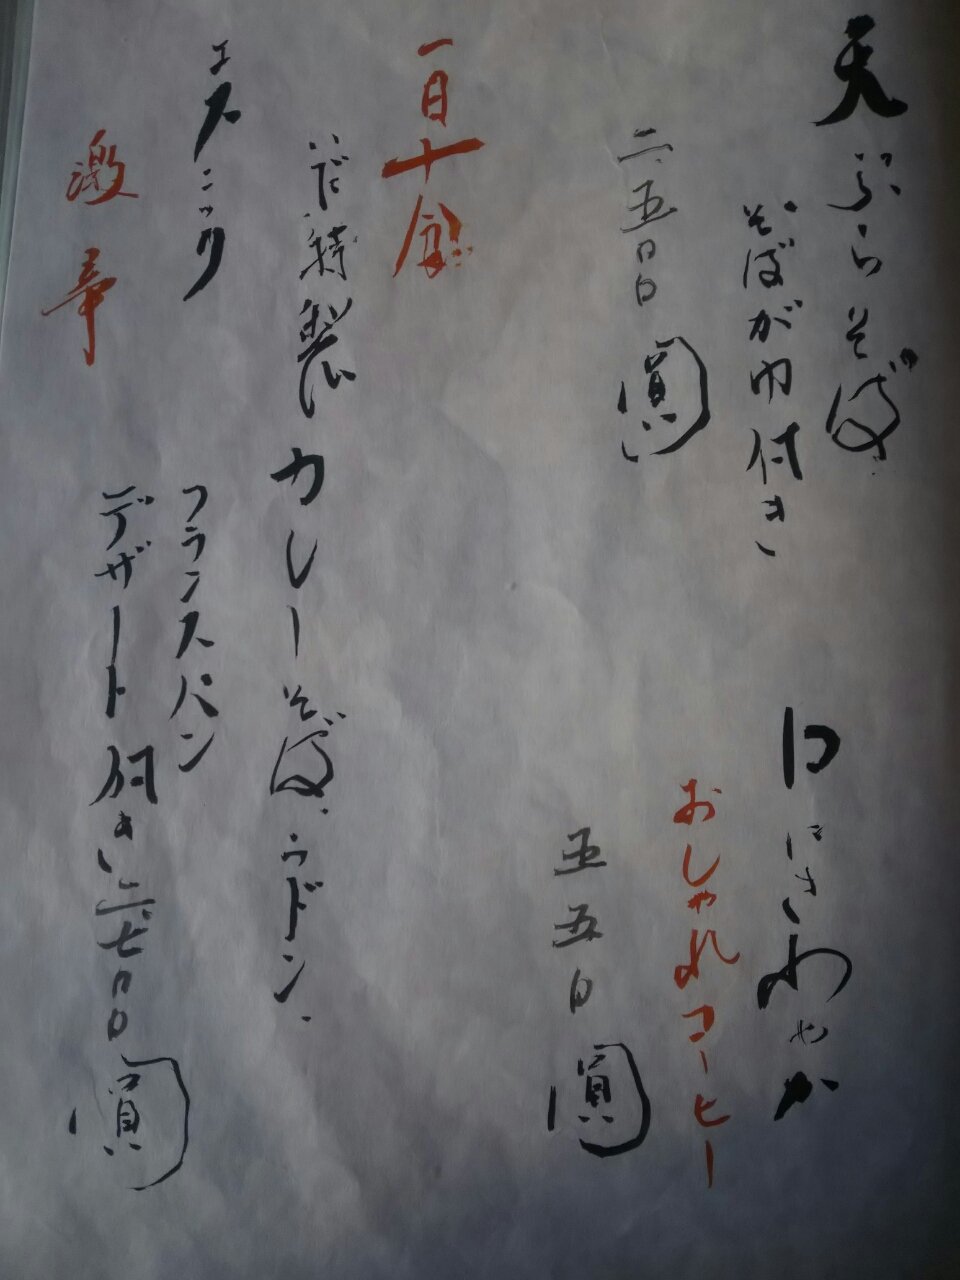 天ぷらそば
そばがゆ付き
二.五〇〇圓
口にさわやか
おしゃれコーヒー
五五〇圓
一日十食
特製カレーそば.ウドン.
エスニック
フランスパン
激辛
デザート付き二.七〇〇圓